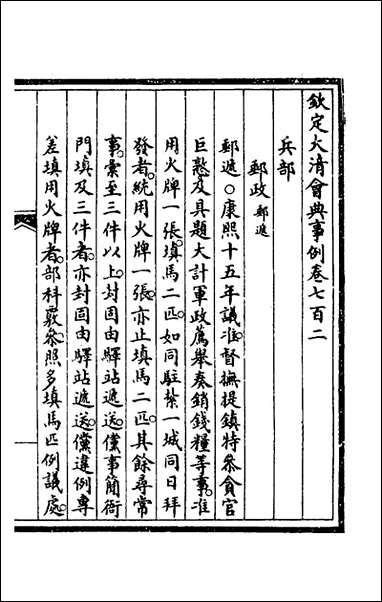 欽定大清會典事例卷七百二
兵部
郵政 郵遞
郵遞○康熙十五年議准督撫提鎮特參貪官
巨惡及具題大計軍政薦舉奏銷錢糧等事准
用火牌一張填馬二匹如同駐紮一城同日拜
發者統用火牌一張亦止填馬二匹其餘尋常
事彙至三件以上封固由驛站遞送儻事簡衙
門填及三件者亦封固由驛站遞送儻違例專
差填用火牌者部科覈參照多填馬匹例議處